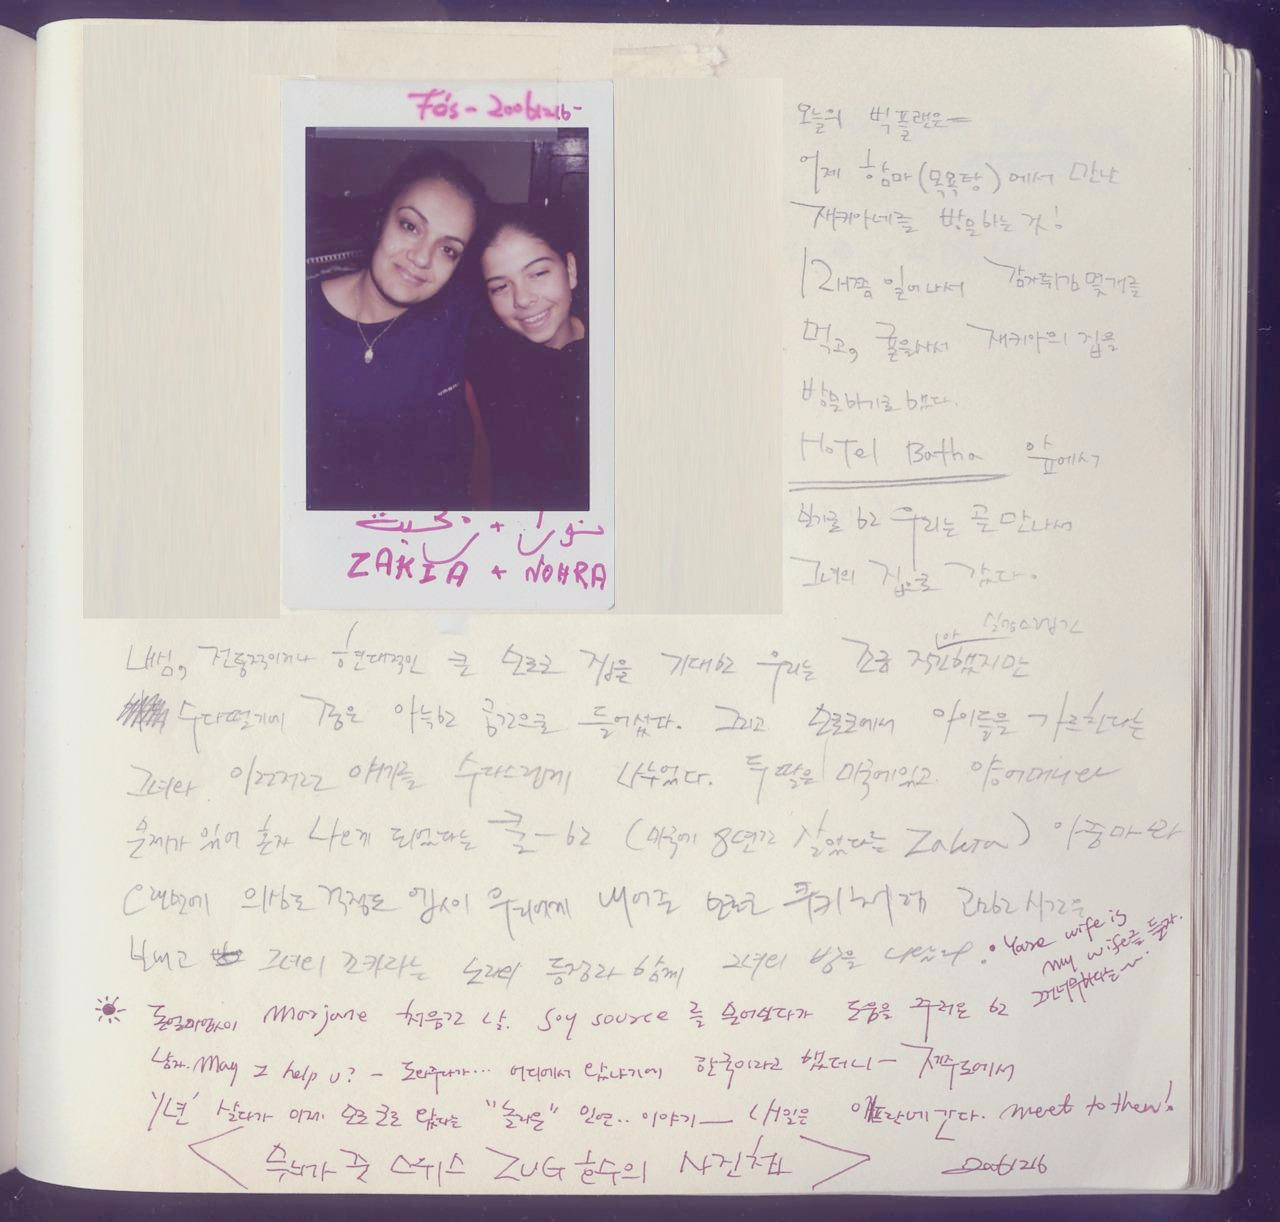 Fés - 20061216-
ZAKIA + NOHRA
오늘의 빅플랜은
어제 함마(목욕탕)에서 만난
재키아네를 방문하는 것!
12시쯤 일어나서 감자튀김 몇개를
먹고, 귤을 사서 재키아의 집을
방문하기로 했다.
Hotel Batha 앞에서
보기로 한 우리는 곧 만나서
그녀의 집으로 갔다.
실망스럽긴
내심, 전통적이거나 현대적인 큰 모로코 집을 기대한 우리는 조금 했지만
수다떨기에 좋은 아늑한 공간으로 들어섰다. 그리고 모로코에서 아이들을 가르친다는
그녀와 이런저런 얘기를 수다스럽게 나누었다. 두 딸은 미국에있고
문제가 있어 혼자 나오게 되었다는 쿨-한 (미국에 8년간 살았다는 Zakia) 아줌마와
의상도 걱정도 없이 우리에게 내어준 모로코 쿠키
보내고 그녀의 조카라는 노라의 등장과 함께 그녀의 방을 나왔다.
wife is
my wife
Morjane 처음간 날. Soy source 를 물어보다가 도움을 주려는 한
남자. May I help u? - 도와주다가... 어디에서 왔냐기에 한국이라고 했더니 - 제주도에서
'1년' 살다가 이제 모로코로 왔다는 "놀라운" 인연.. 이야기— 내일은 간다. meet to them!
준 스위스 ZUG 호수의 사진첩
20061216